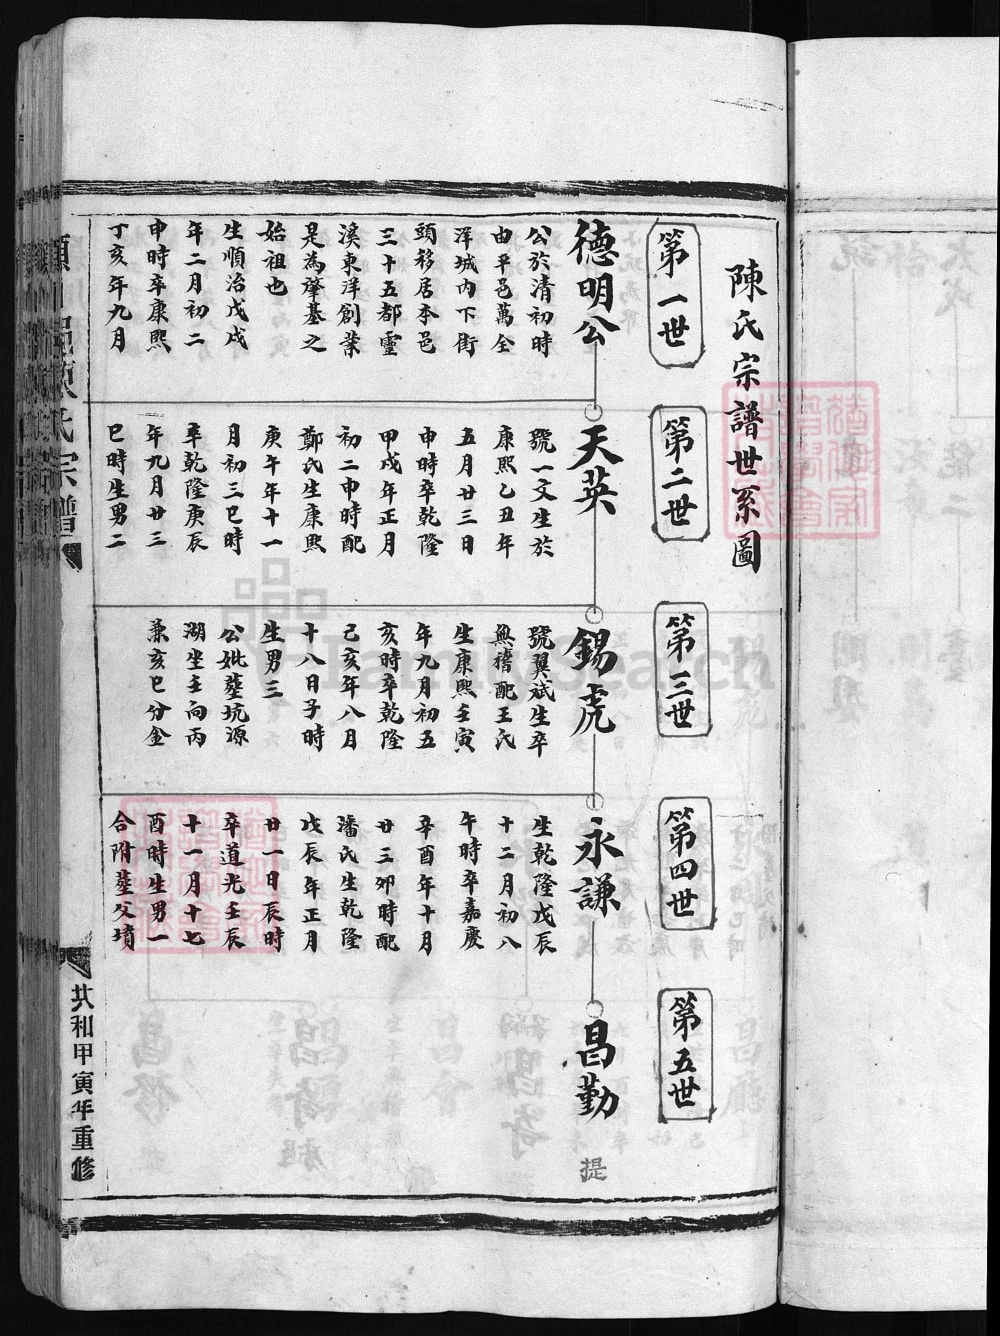 陳氏宗譜世系圖
第一世
德明公
公於清初時
由平邑萬全
洋城內下街
頭移居本邑
三十五都靈
溪東洋創業
是為肇基之
始祖也
生順治戊戌
年二月初二
申時卒康熙
丁亥年九月
第二世
天英
號一文生於
康熙乙丑年
五月廿三日
申時卒乾隆
甲戌年正月
初二申時配
鄭氏生康熙
庚午年十一
月初三巳時
卒乾隆庚辰
年九月廿三
巳時生男二
第三世
錫虎
號翼斌生卒
無稽配王氏
生康熙壬寅
年九月初五
亥時卒乾隆
己亥年八月
十八日子時
生男三
公妣塟坑源
湖坐壬向丙
兼亥巳分金
第四世
永謙
生乾隆戊辰
十二月初八
午時卒嘉慶
辛酉年十月
廿三夘時配
潘氏生乾隆
戊辰年正月
廿一日辰時
卒道光壬辰
十一月十七
酉時生男一
合附塟父墳
第五世
昌勤
提
氏宗譜
共和甲寅年重修
FamilySearch